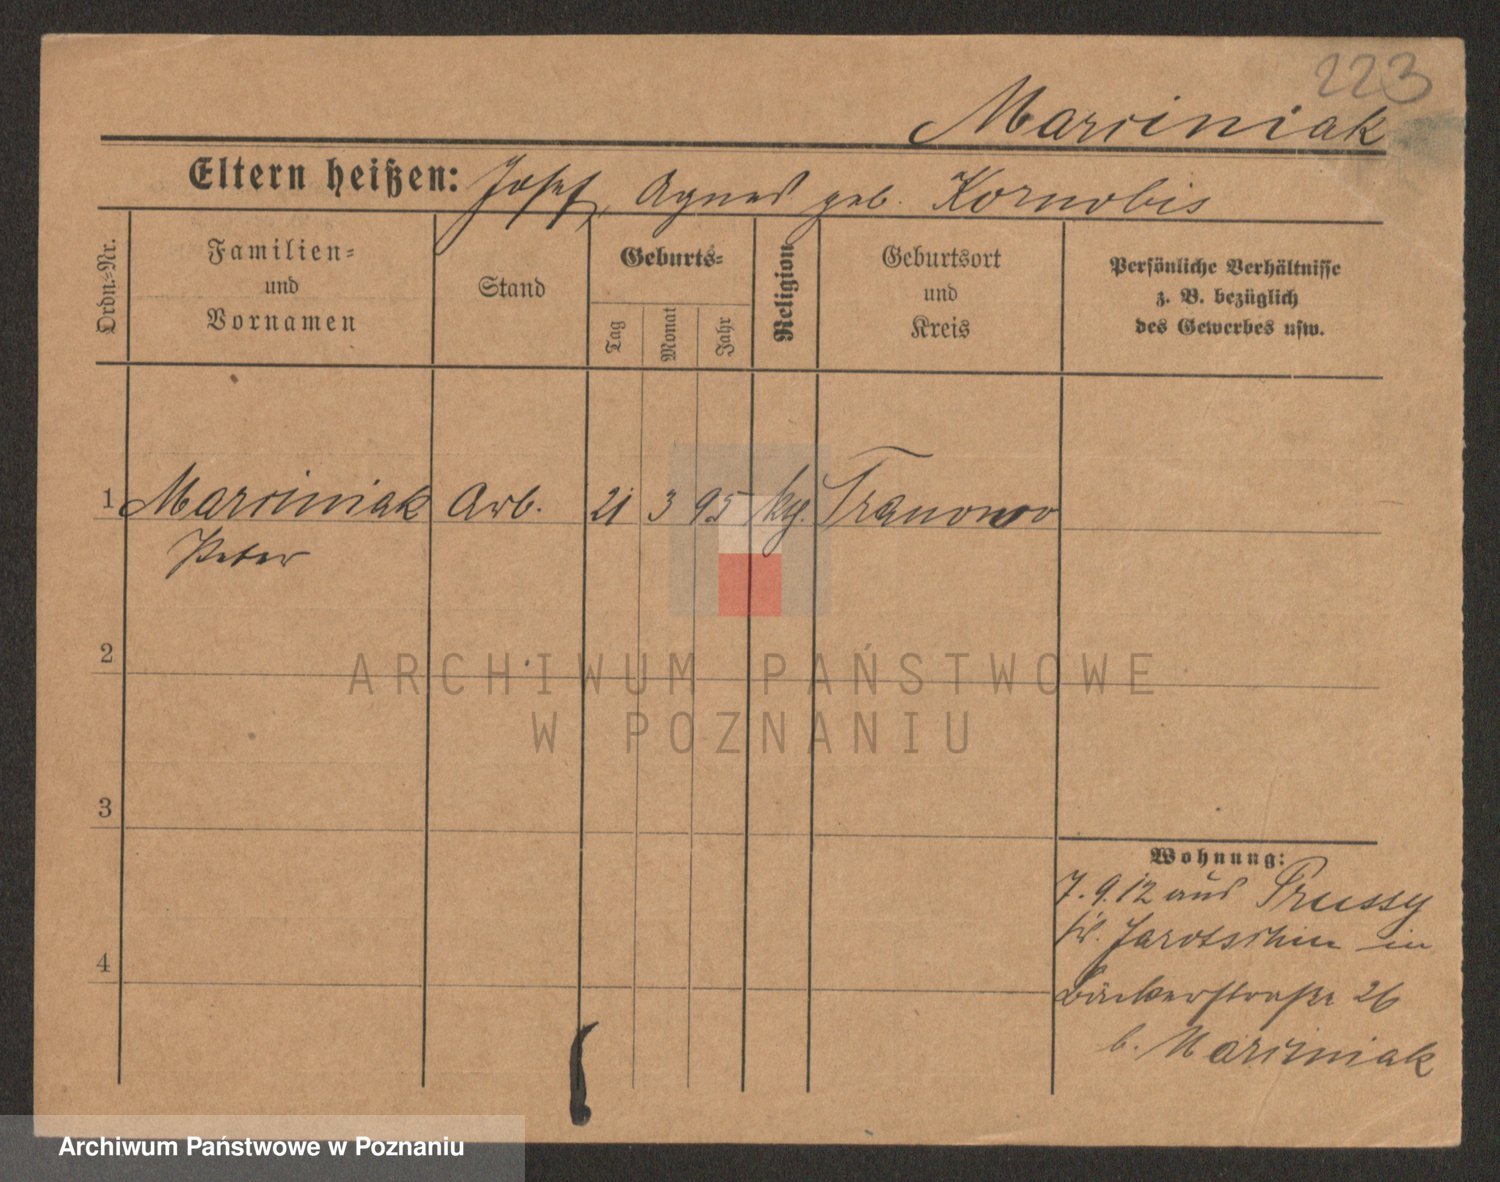 223
Marciniak
Eltern heißen: Josef, Agnes geb. Kornobis
Ordn.=Nr.
Familien=
und
Vornamen
Stand
Geburts=
Tag
Monat
Jahr
Religion
Geburtsort
und
Kreis
Persönliche Verhältnisse
z. B. bezüglich
des Gewerbes usw.
1 Marciniak Arb. 21 3 95 kg.
Peter
2
3
4
Wohnung:
7.9.12 aus Prussy
Jarotschin in
Bäckerstraße 26
b. Marciniak
ARCHIWUM PAŃSTWOWE
W POZNANIU
Archiwum Państwowe w Poznaniu